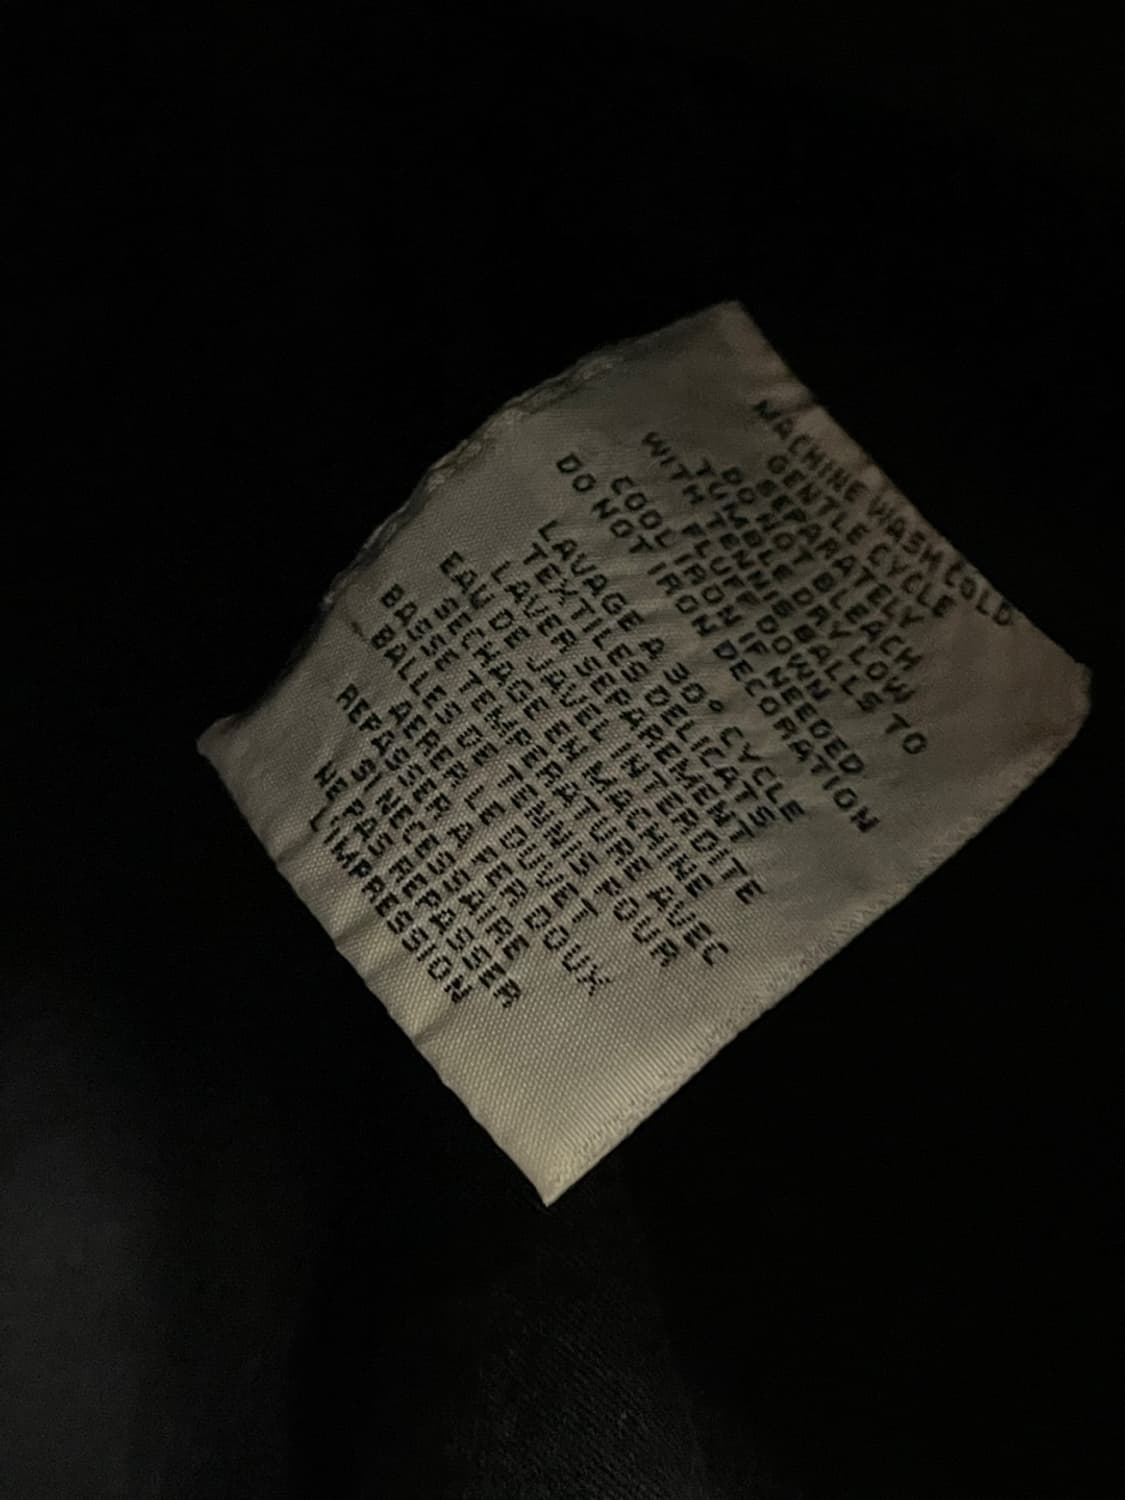 MACHINE WASH COLD
GENTLE CYCLE
SEPARATELY
DO NOT BLEACH
TUMBLE DRY LOW
WITH TENNIS BALLS TO
FLUFF DOWN
COOL IRON IF NEEDED
DO NOT IRON DECORATION
LAVAGE A 30° CYCLE
TEXTILES DELICATS
LAVER SEPAREMENT
EAU DE JAVEL INTERDITE
SECHAGE EN MACHINE
BASSE TEMPERATURE AVEC
BALLES DE TENNIS POUR
AERER LE DUVET
REPASSER A FER DOUX
SI NECESSAIRE
NE PAS REPASSER
L'IMPRESSION